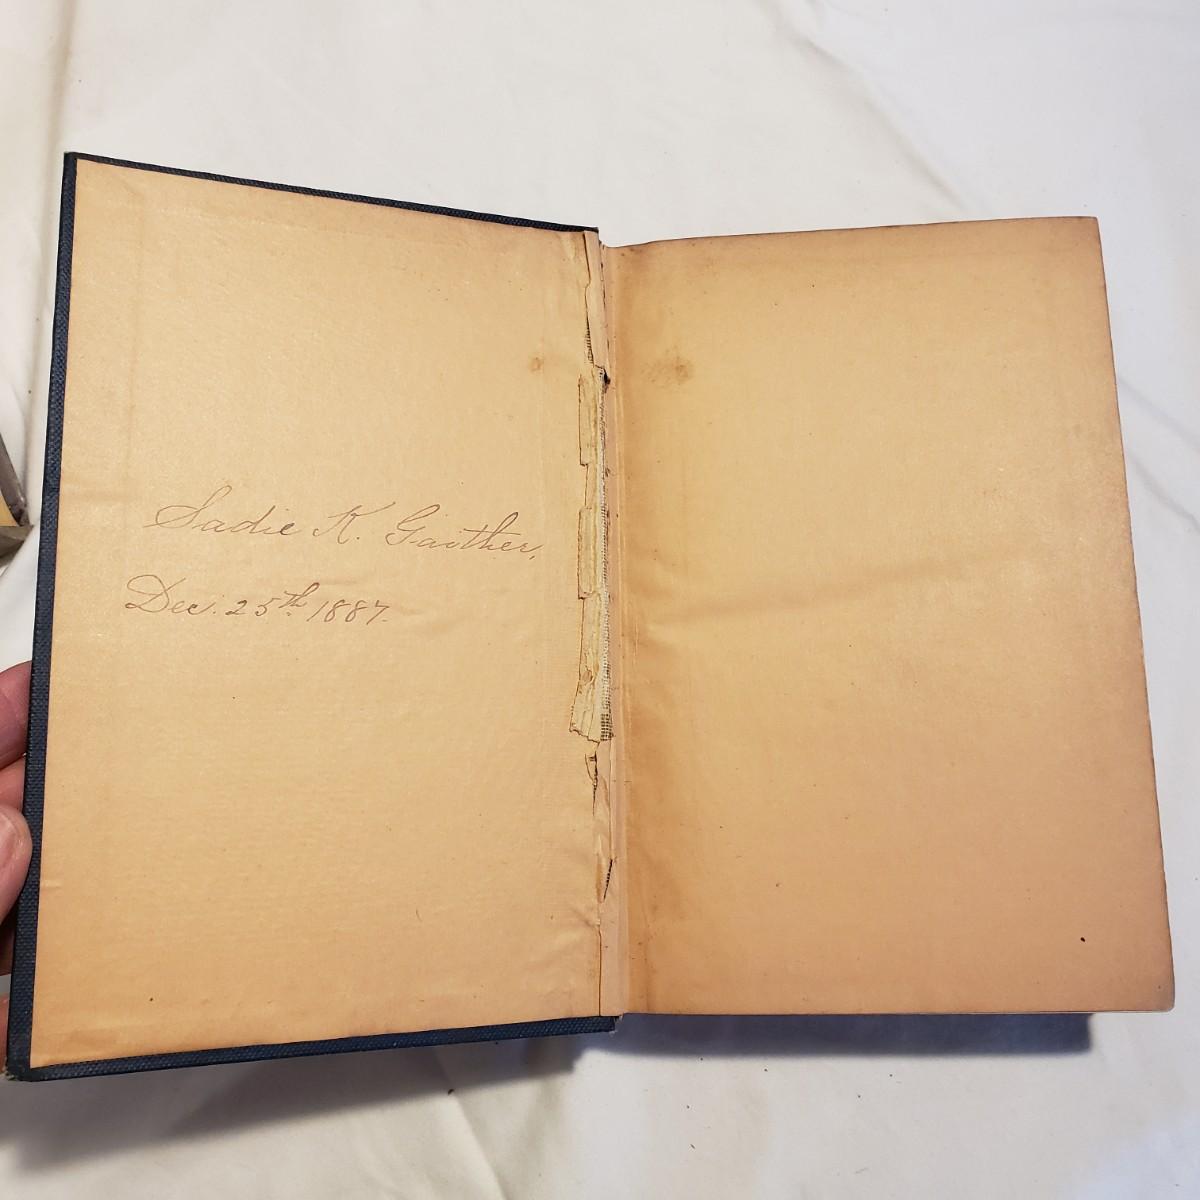 Sadie K. Gaither,
Dec. 25th 1887.